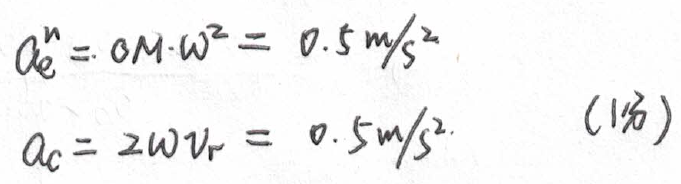 aₑⁿ = OM·ω² = 0.5 m/s²
a_c = 2ωvᵣ = 0.5 m/s². (1分)